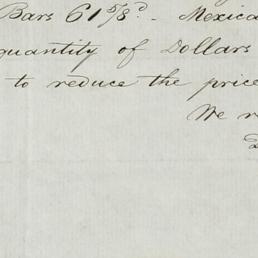 Bars 61 5/8 d. Mexica
quantity of Dollars
to reduce the price
We r